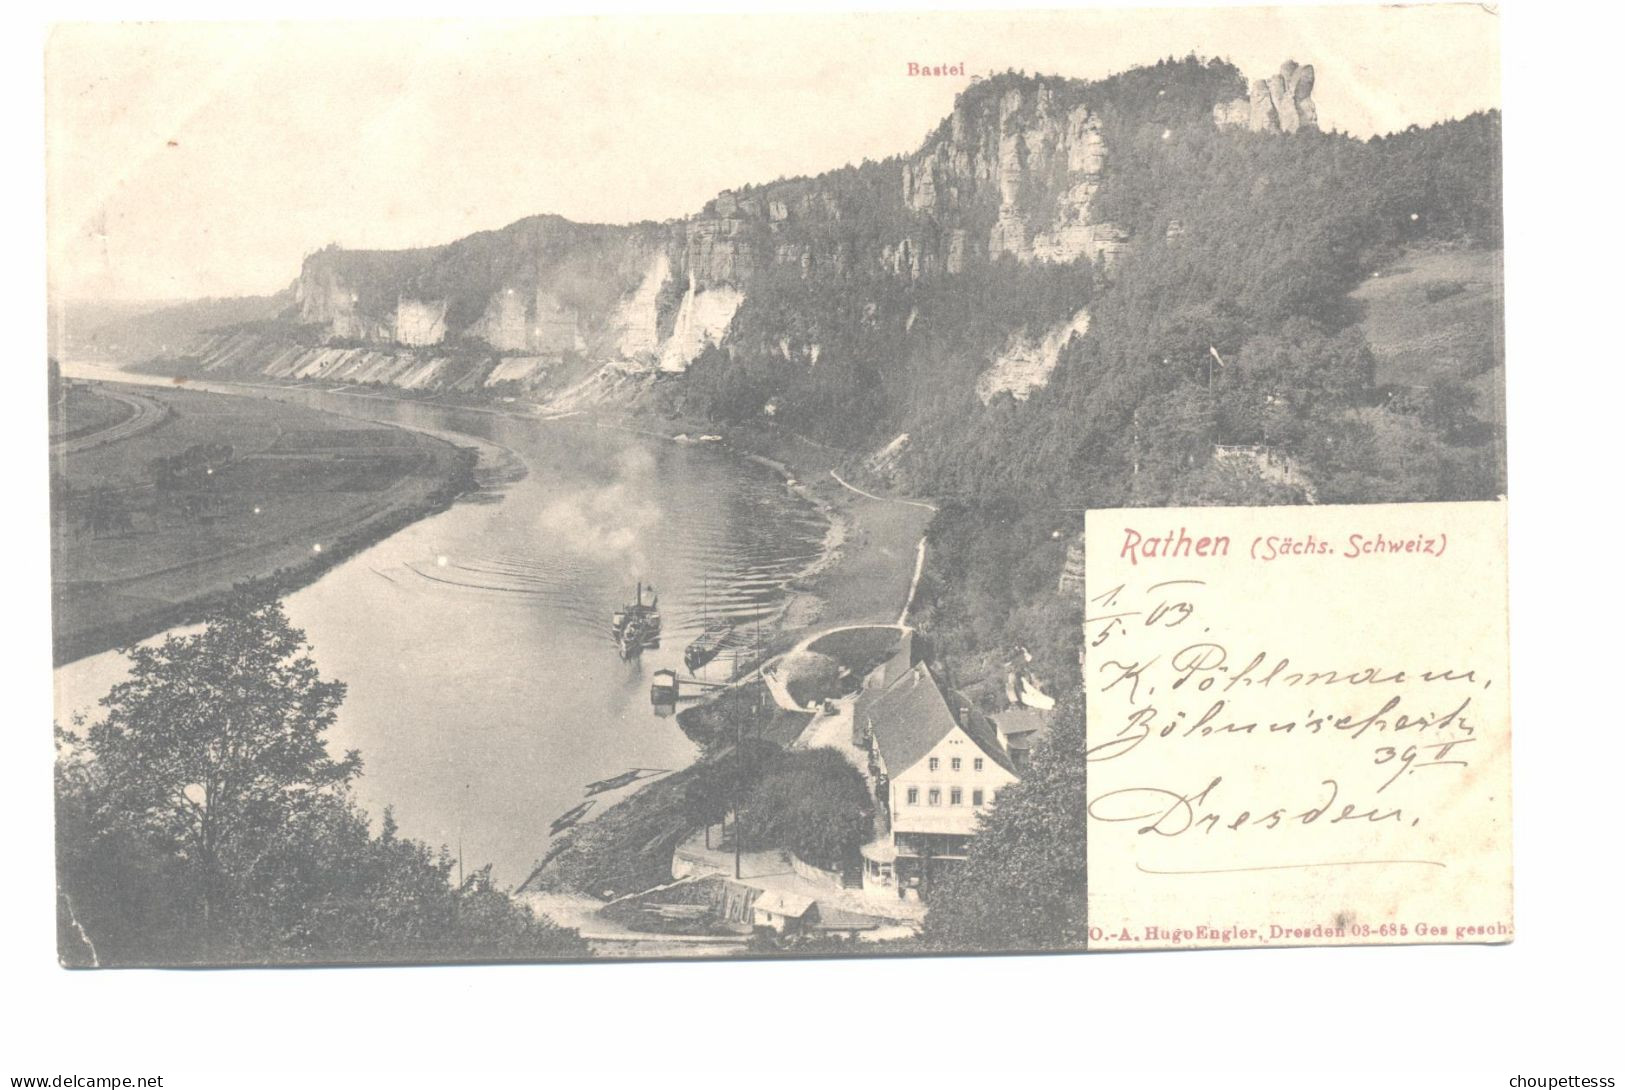 Bastei
Rathen (Sächs. Schweiz)
1./5. 03.
K. Pöhlmann,
Böhmischestr.
39 II
Dresden.
O.-A. Hugo Engler, Dresden 03-685 Ges gesch.
www.delcampe.net
choupettesss